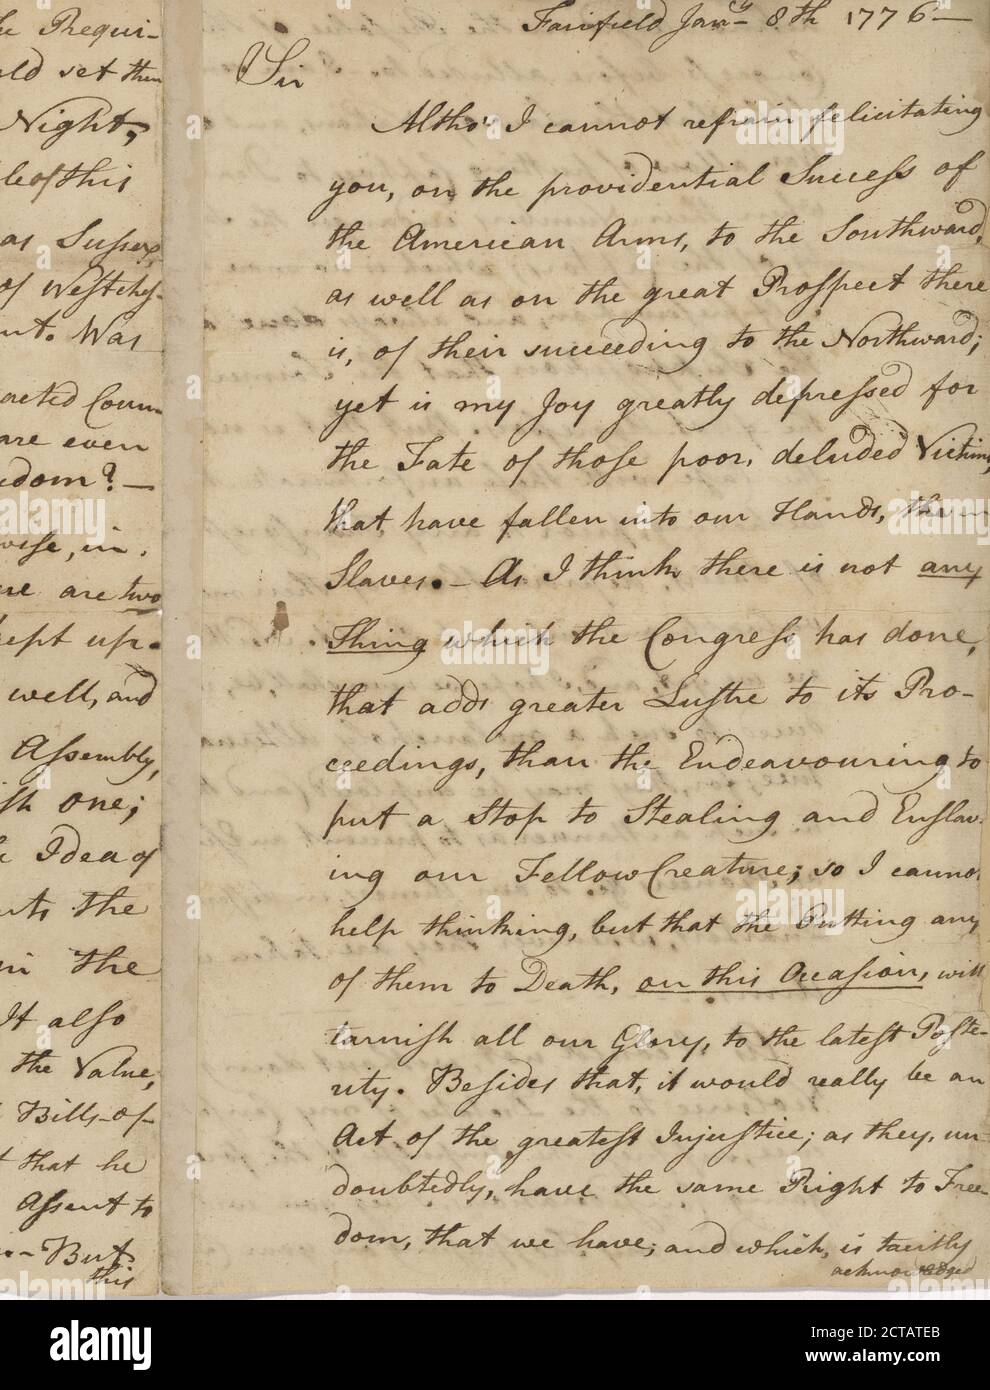 e Requi-
uld set them
Night,
le of this
as Sussex,
of Westches-
nt. Was
acted Coun-
are even
edom? —
wise, in.
are are two
kept up.
well, and
Assembly,
ish one;
Idea of
the
in the
It also
the Value,
Bills-of-
that he
Assent to
But
this
Fairfield Jany. 8th 1776 —
Sir
Altho' I cannot refrain felicitating
you, on the providential Success of
the American Arms, to the Southward,
as well as on the great Prospect there
is, of their succeeding to the Northward;
yet is my Joy greatly depressed for
the Fate of those poor, deluded Victims,
that have fallen into our Hands, the
Slaves. — As I think there is not any
Thing which the Congress has done,
that adds greater Lustre to its Pro-
ceedings, than the Endeavouring to
put a Stop to Stealing and Enslav-
ing our Fellow Creature; so I cannot
help thinking, but that the Putting any
of them to Death, on this Occasion, will
tarnish all our Glory, to the latest Poste-
rity. Besides that, it would really be an
Act of the greatest Injustice; as they, un-
doubtedly, have the same Right to Free-
dom, that we have; and which, is tacitly
acknowledged
alamy
Image ID: 2CTATEB
www.alamy.com